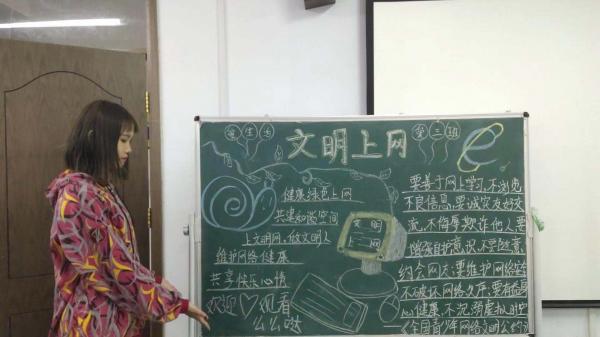 文明上网
健康绿色上网
共建知识空间
上文明网,做文明人
维护网络健康
共享快乐心情
欢迎♡观看
么么哒
要善于网上学习,不浏览
不良信息.要诚实友好交
流,不侮辱欺诈他人.要
增强自护意识,不随意
约会网友;要维护网络安全
不破坏网络秩序.要有益身
心健康,不沉溺虚拟时空
《全国青少年网络文明公约》